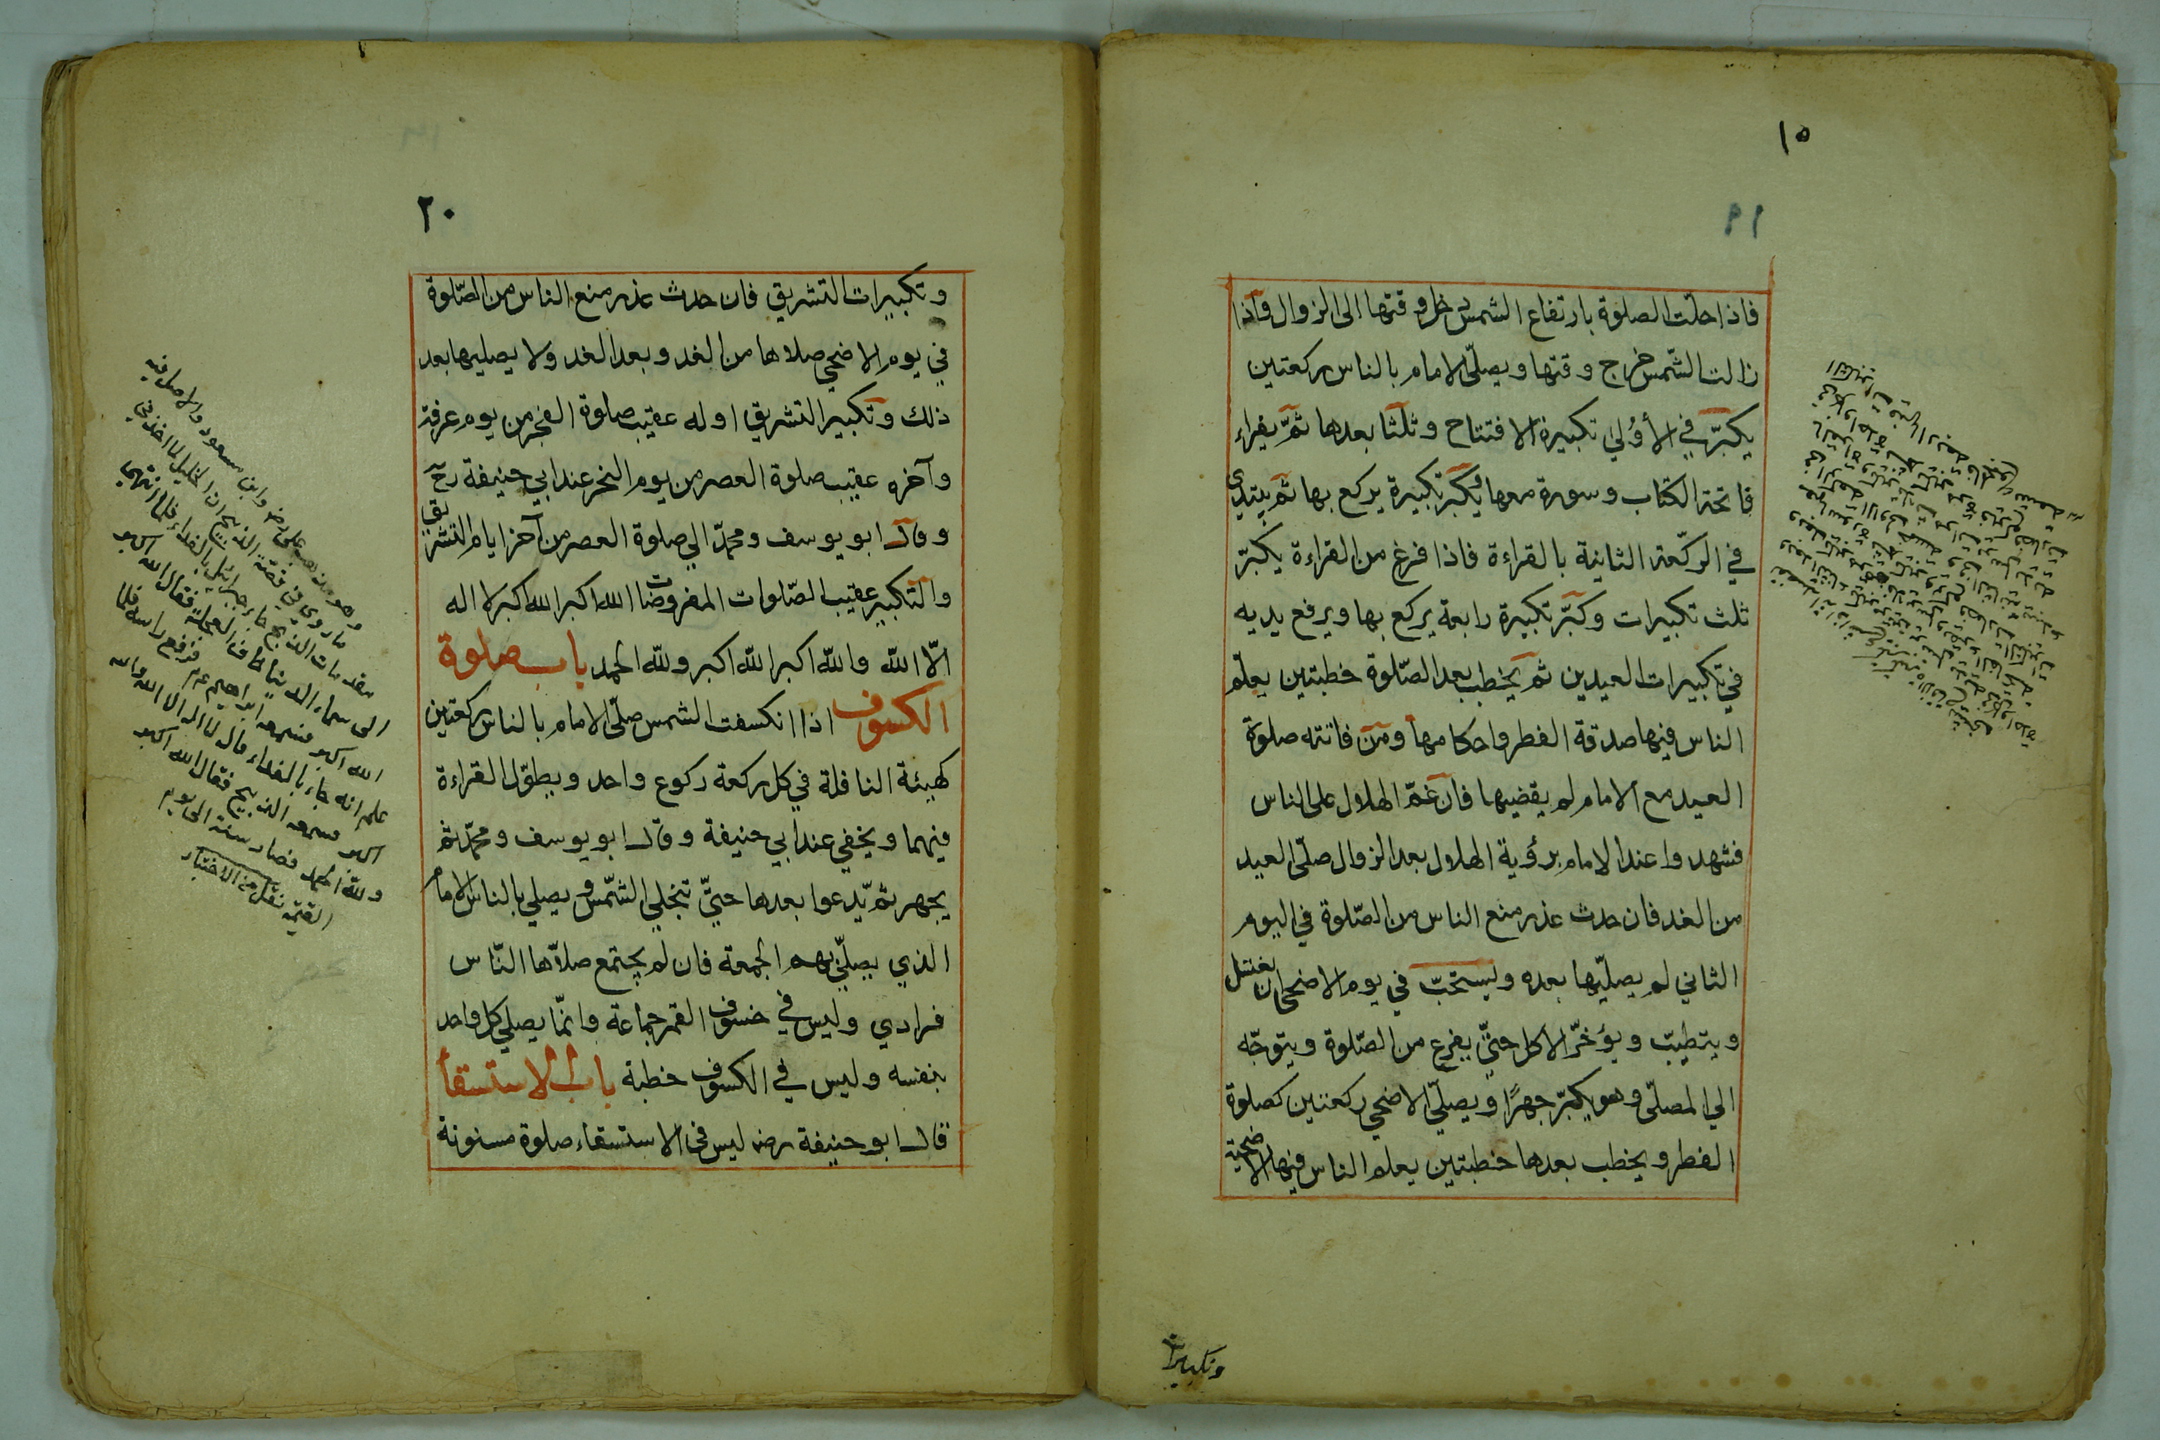 ١٥
١٩
فاذا حلّت الصلوة بارتفاع الشمس دخل وقتها الى الزوال فاذا
زالت الشّمس خرج وقتها ويصلّي الامام بالناس ركعتين
يكبّر في الأوُلي تكبيرة الافتتاح وثلثا بعدها ثمّ يقراء
فاتحة الكتاب وسورة معها ويكبّر تكبيرة يركع بها ثمّ يبتدئ
في الركّعة الثانية بالقراءة فاذا فرغ من القراءة يكبّر
ثلث تكبيرات وكبّر تكبيرة رابعة يركع بها ويرفع يديه
في تكبيرات العيدين ثم يخطب بعد الصّلوة خطبتين يعلّم
الناس فيها صدقة الفطر واحكامها ومن فاتته صلوة
العيد مع الامام لم يقضيها فان غمّ الهلال على الناس
فشهدوا عند الامام برؤية الهلال بعد الزوال صلّى العيد
من الغد فان حدث عذر منع الناس من الصّلوة في اليوم
الثاني لم يصليّها بعده ويستحبّ في يوم الاضحى ان يغتسل
ويتطيبّ ويؤخرّ الاكل حتيّ يفرغ من الصّلوة ويتوجّه
الي المصلّى وهو يكبّر جهرًا ويصلّي الاضحي ركعتين كصلوة
الفطر ويخطب بعدها خطبتين يعلم الناس فيها الاضحية
وتكبيرات
٢٠
وتكبيرات التشريق فان حدث عذر منع الناس من الصّلوة
في يوم الاضحي صلاها من الغد وبعد الغد ولا يصليها بعد
ذلك وتكبير التشريق اوله عقيب صلوة الفجر من يوم عرفة
وآخره عقيب صلوة العصر من يوم النحر عند ابي حنيفة رح
وقال ابو يوسف ومحمّد الي صلوة العصر من آخر ايام التشريق
والتّكبير عقيب الصّلوات المفروضات الله اكبر الله اكبر لا اله
الّا الله والله اكبر الله اكبر ولله الحمد باب صلوة
الكسوف اذا انكسفت الشمس صلّي الامام بالناس ركعتين
كهيئة النافلة في كل ركعة ركوع واحد ويطوّل القراءة
فيهما ويخفي عند ابي حنيفة وقال ابو يوسف ومحمّد ثم
يجهر ثم يّدعوا بعدها حتيّ تنجلي الشّمس ويصلي بالناس الامام
الذي يصلّي بهم الجمعة فان لم يجتمع صلاّها النّاس
فرادي وليس في خسوف القمر جماعة وانمّا يصلي كل واحد
بنفسه وليس في الكسوف خطبة باب الاستسقاء
قال ابو حنيفة رض ليس فى الاستسقاء صلوة مسنونة
وهو مذهب على رض وابن مسعود والاصل فيه
ما روي في قصّة الذبيح ان الخليل لما اخذ في
مقدمات الذبح جاء جبرائيل بالفداء فلما انتهى
الى سماء الدنيا خاف العجلة فقال الله اكبر
الله اكبر فسمعه ابراهيم عم فرفع راسه فلما
علم انه جاء بالفداء قال لا اله الا الله والله
اكبر فسمعه الذبيح فقال الله اكبر
ولله الحمد فصار سنة الى يوم
القيمة نقل من الاختيار